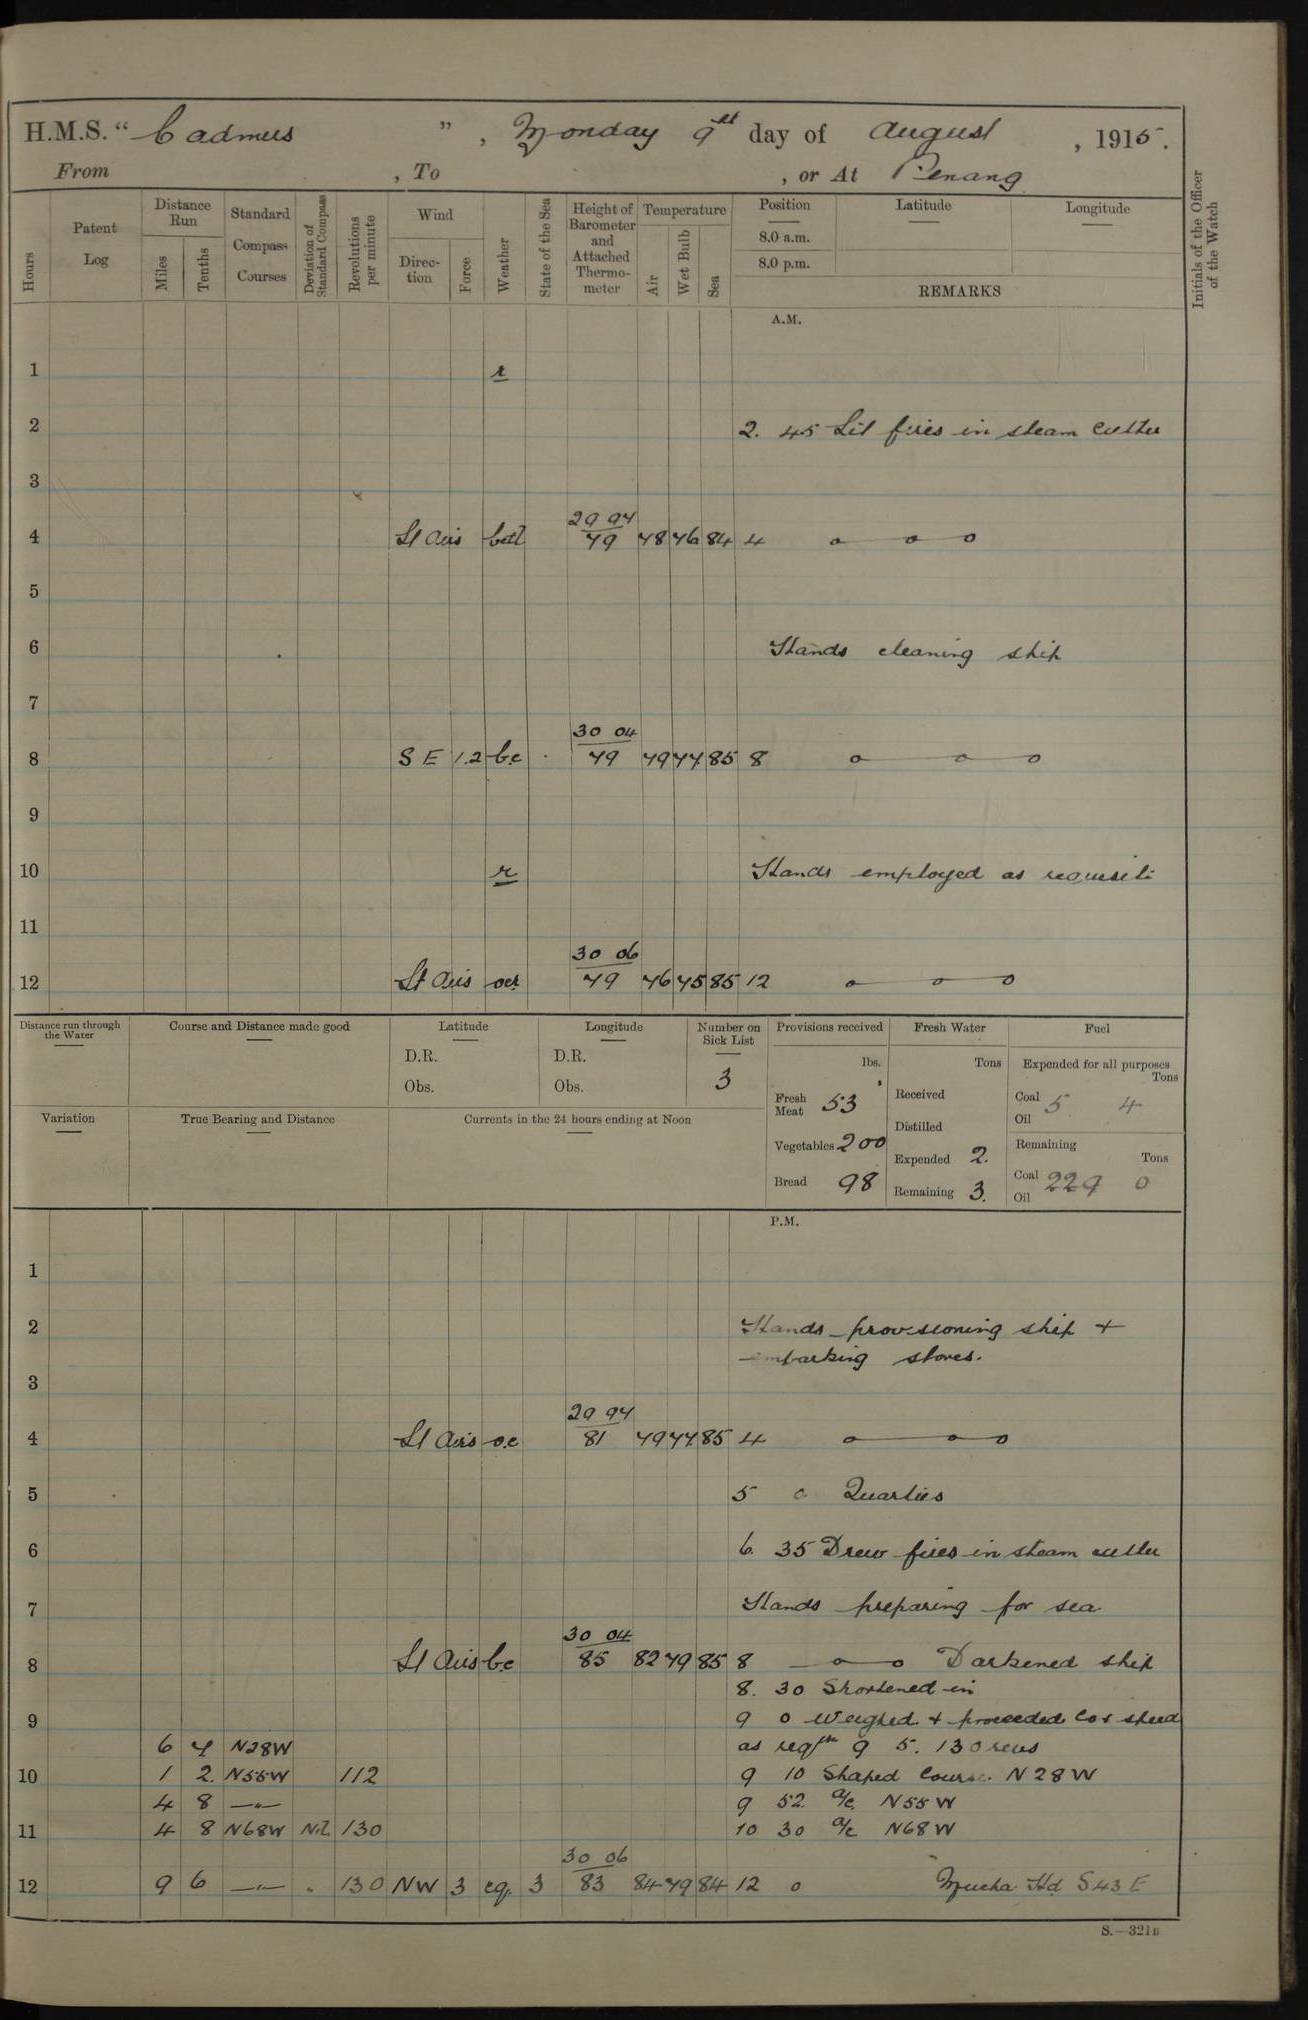 H.M.S. "Cadmus", Monday 9th day of August, 1915.
From , To , or At Penang
Hours
Patent Log
Distance Run
Miles
Tenths
Standard Compass Courses
Deviation of Standard Compass
Revolutions per minute
Wind
Direction
Force
Weather
State of the Sea
Height of Barometer and Attached Thermometer
Temperature
Air
Wet Bulb
Sea
Position
8.0 a.m.
8.0 p.m.
Latitude
Longitude
REMARKS
Initials of the Officer of the Watch
A.M.
1 r
2 2. 45 Lit fires in steam cutter
3
29 97
4 Lt Airs 79 78 76 84 4
5
6 Hands cleaning ship
7
30 04
8 S E 1.2 b.c 79 79 77 85 8
9
10 r Hands employed as requisite
11
30 06
12 Lt Airs ocr 79 76 75 85 12
Distance run through the Water
Course and Distance made good
Latitude
D.R.
Obs.
Longitude
D.R.
Obs.
Number on Sick List
3
Provisions received
lbs.
Fresh Meat 53
Vegetables 200
Bread 98
Fresh Water
Tons
Received
Distilled
Expended 2.
Remaining 3.
Fuel
Expended for all purposes
Tons
Coal 5 4
Oil
Remaining
Tons
Coal 229 0
Oil
Variation
True Bearing and Distance
Currents in the 24 hours ending at Noon
P.M.
1
2 Hands provisioning ship +
embarking stores.
3
29 97
4 Lt Airs o.c 81 79 77 85 4
5 5 0 Quarters
6 6. 35 Drew fires in steam cutter
7 Hands preparing for sea
30 04
8 Lt Airs b.c 85 82 79 85 8 Darkened ship
8. 30 Shortened in
9 9 0 Weighed + proceeded Co + speed
6 7 N28W as reqte 9 5. 130 revs
10 1 2. N55W 112 9 10 Shaped Course N28W
4 8 —"— 9 52 a/c N55W
11 4 8 N68W Nil 130 10 30 a/c N68W
30 06
12 9 6 —"— " 130 NW 3 cq. 3 83 84 79 84 12 0 Mucka Hd S43E
S.—321B